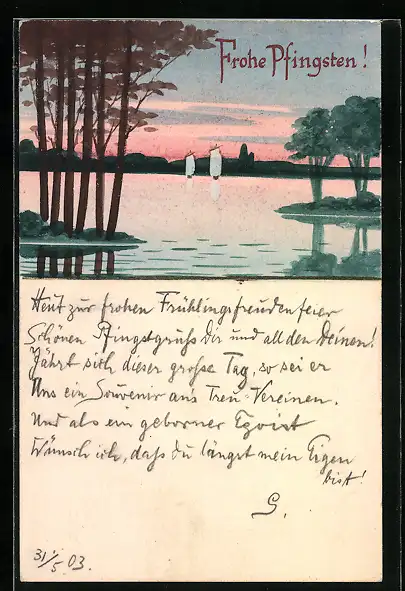 Frohe Pfingsten!
Heut zur frohen Frühlingsfreudenfeier
Schönen Pfingstgruß Dir und all den Deinen!
Jährt sich dieser große Tag, so sei er
Uns ein Souvenir ans Treu-Vereinen.
Und als ein geborner Egoist
Wünsch ich, daß du längst mein Eigen
bist!
G.
31/5 03.